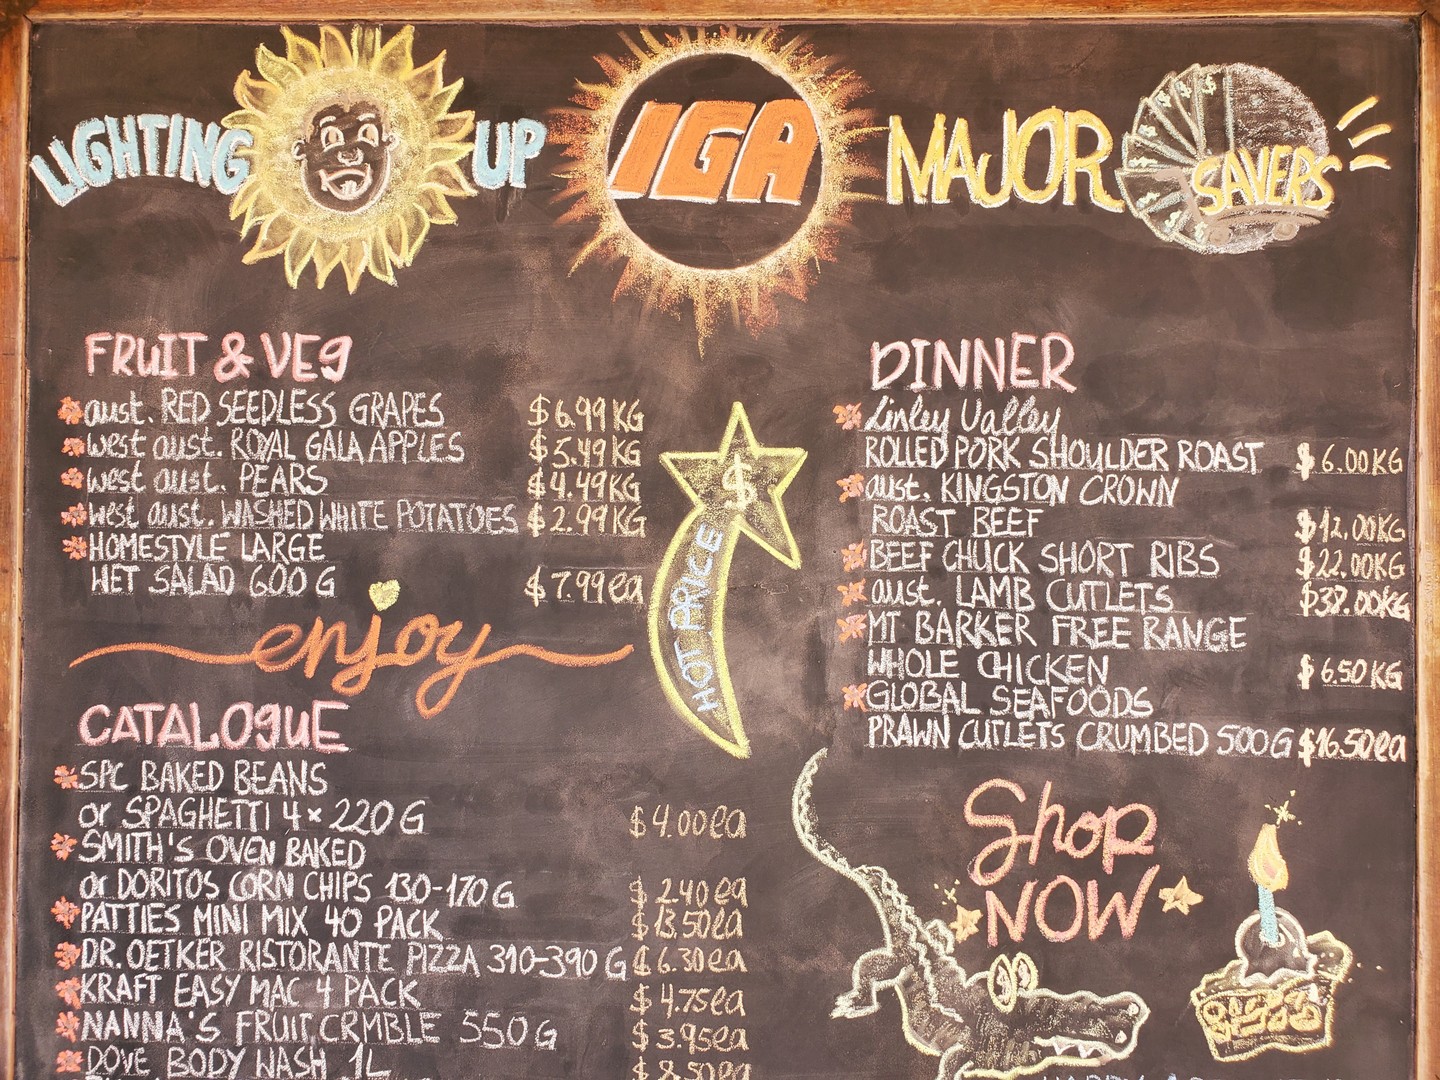 LIGHTING UP IGA MAJOR SAVERS
FRUIT & VEG
aust. RED SEEDLESS GRAPES $6.99KG
west aust. ROYAL GALA APPLES $5.49KG
west aust. PEARS $4.49KG
west aust. WASHED WHITE POTATOES $2.99KG
HOMESTYLE LARGE
HET SALAD 600 G $7.99ea
enjoy
CATALOGUE
SPC BAKED BEANS
or SPAGHETTI 4x220G $4.00ea
SMITH'S OVEN BAKED
or DORITOS CORN CHIPS 130-170G $2.40ea
PATTIES MINI MIX 40 PACK $13.50ea
DR. OETKER RISTORANTE PIZZA 310-390 G $6.30ea
KRAFT EASY MAC 4 PACK $4.75ea
NANNA'S FRUIT CRMBLE 550G $3.95ea
DOVE BODY WASH 1L $8.50ea
$
HOT PRICE
DINNER
Linley Valley
ROLLED PORK SHOULDER ROAST $6.00KG
aust. KINGSTON CROWN
ROAST BEEF $12.00KG
BEEF CHUCK SHORT RIBS $22.00KG
aust. LAMB CUTLETS $38.00KG
MT BARKER FREE RANGE
WHOLE CHICKEN $6.50KG
GLOBAL SEAFOODS
PRAWN CUTLETS CRUMBED 500G $16.50ea
Shop
NOW